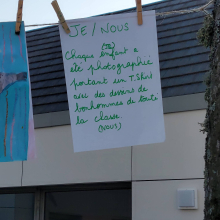 JE / NOUS
(JE)
Chaque enfant a
été photographié
portant un T. Shirt
avec des dessins de
bonhommes de toute
la classe.
(NOUS)